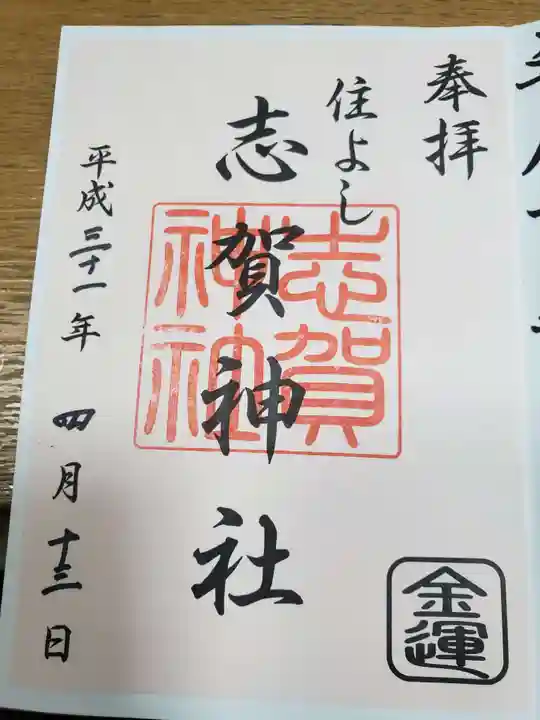 奉拝
住よし
志賀神社
志賀
神社
平成三十一年 四月十三日
金運